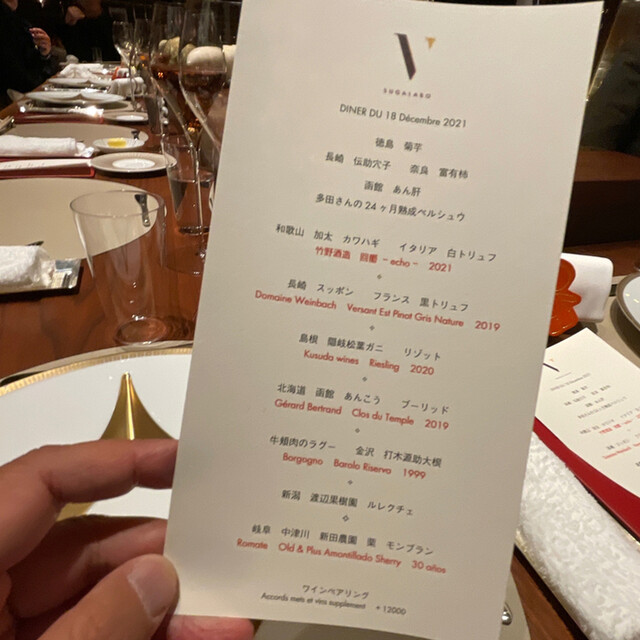 SUGALABO
DINER DU 18 Décembre 2021
徳島 菊芋
長崎 伝助穴子 奈良 富有柿
函館 あん肝
多田さんの24ヶ月熟成ペルシュウ
和歌山 加太 カワハギ イタリア 白トリュフ
竹野酒造 - echo - 2021
長崎 スッポン フランス 黒トリュフ
Domaine Weinbach Versant Est Pinot Gris Nature 2019
島根 隠岐松葉ガニ リゾット
Kusuda wines Riesling 2020
北海道 函館 あんこう ブーリッド
Gérard Bertrand Clos du Temple 2019
牛頬肉のラグー 金沢 打木源助大根
Borgogno Barolo Riserva 1999
新潟 渡辺果樹園 ルレクチェ
岐阜 中津川 新田農園 栗 モンブラン
Romate Old & Plus Amontillado Sherry 30 años
ワインペアリング
Accords mets et vins supplement + 12000